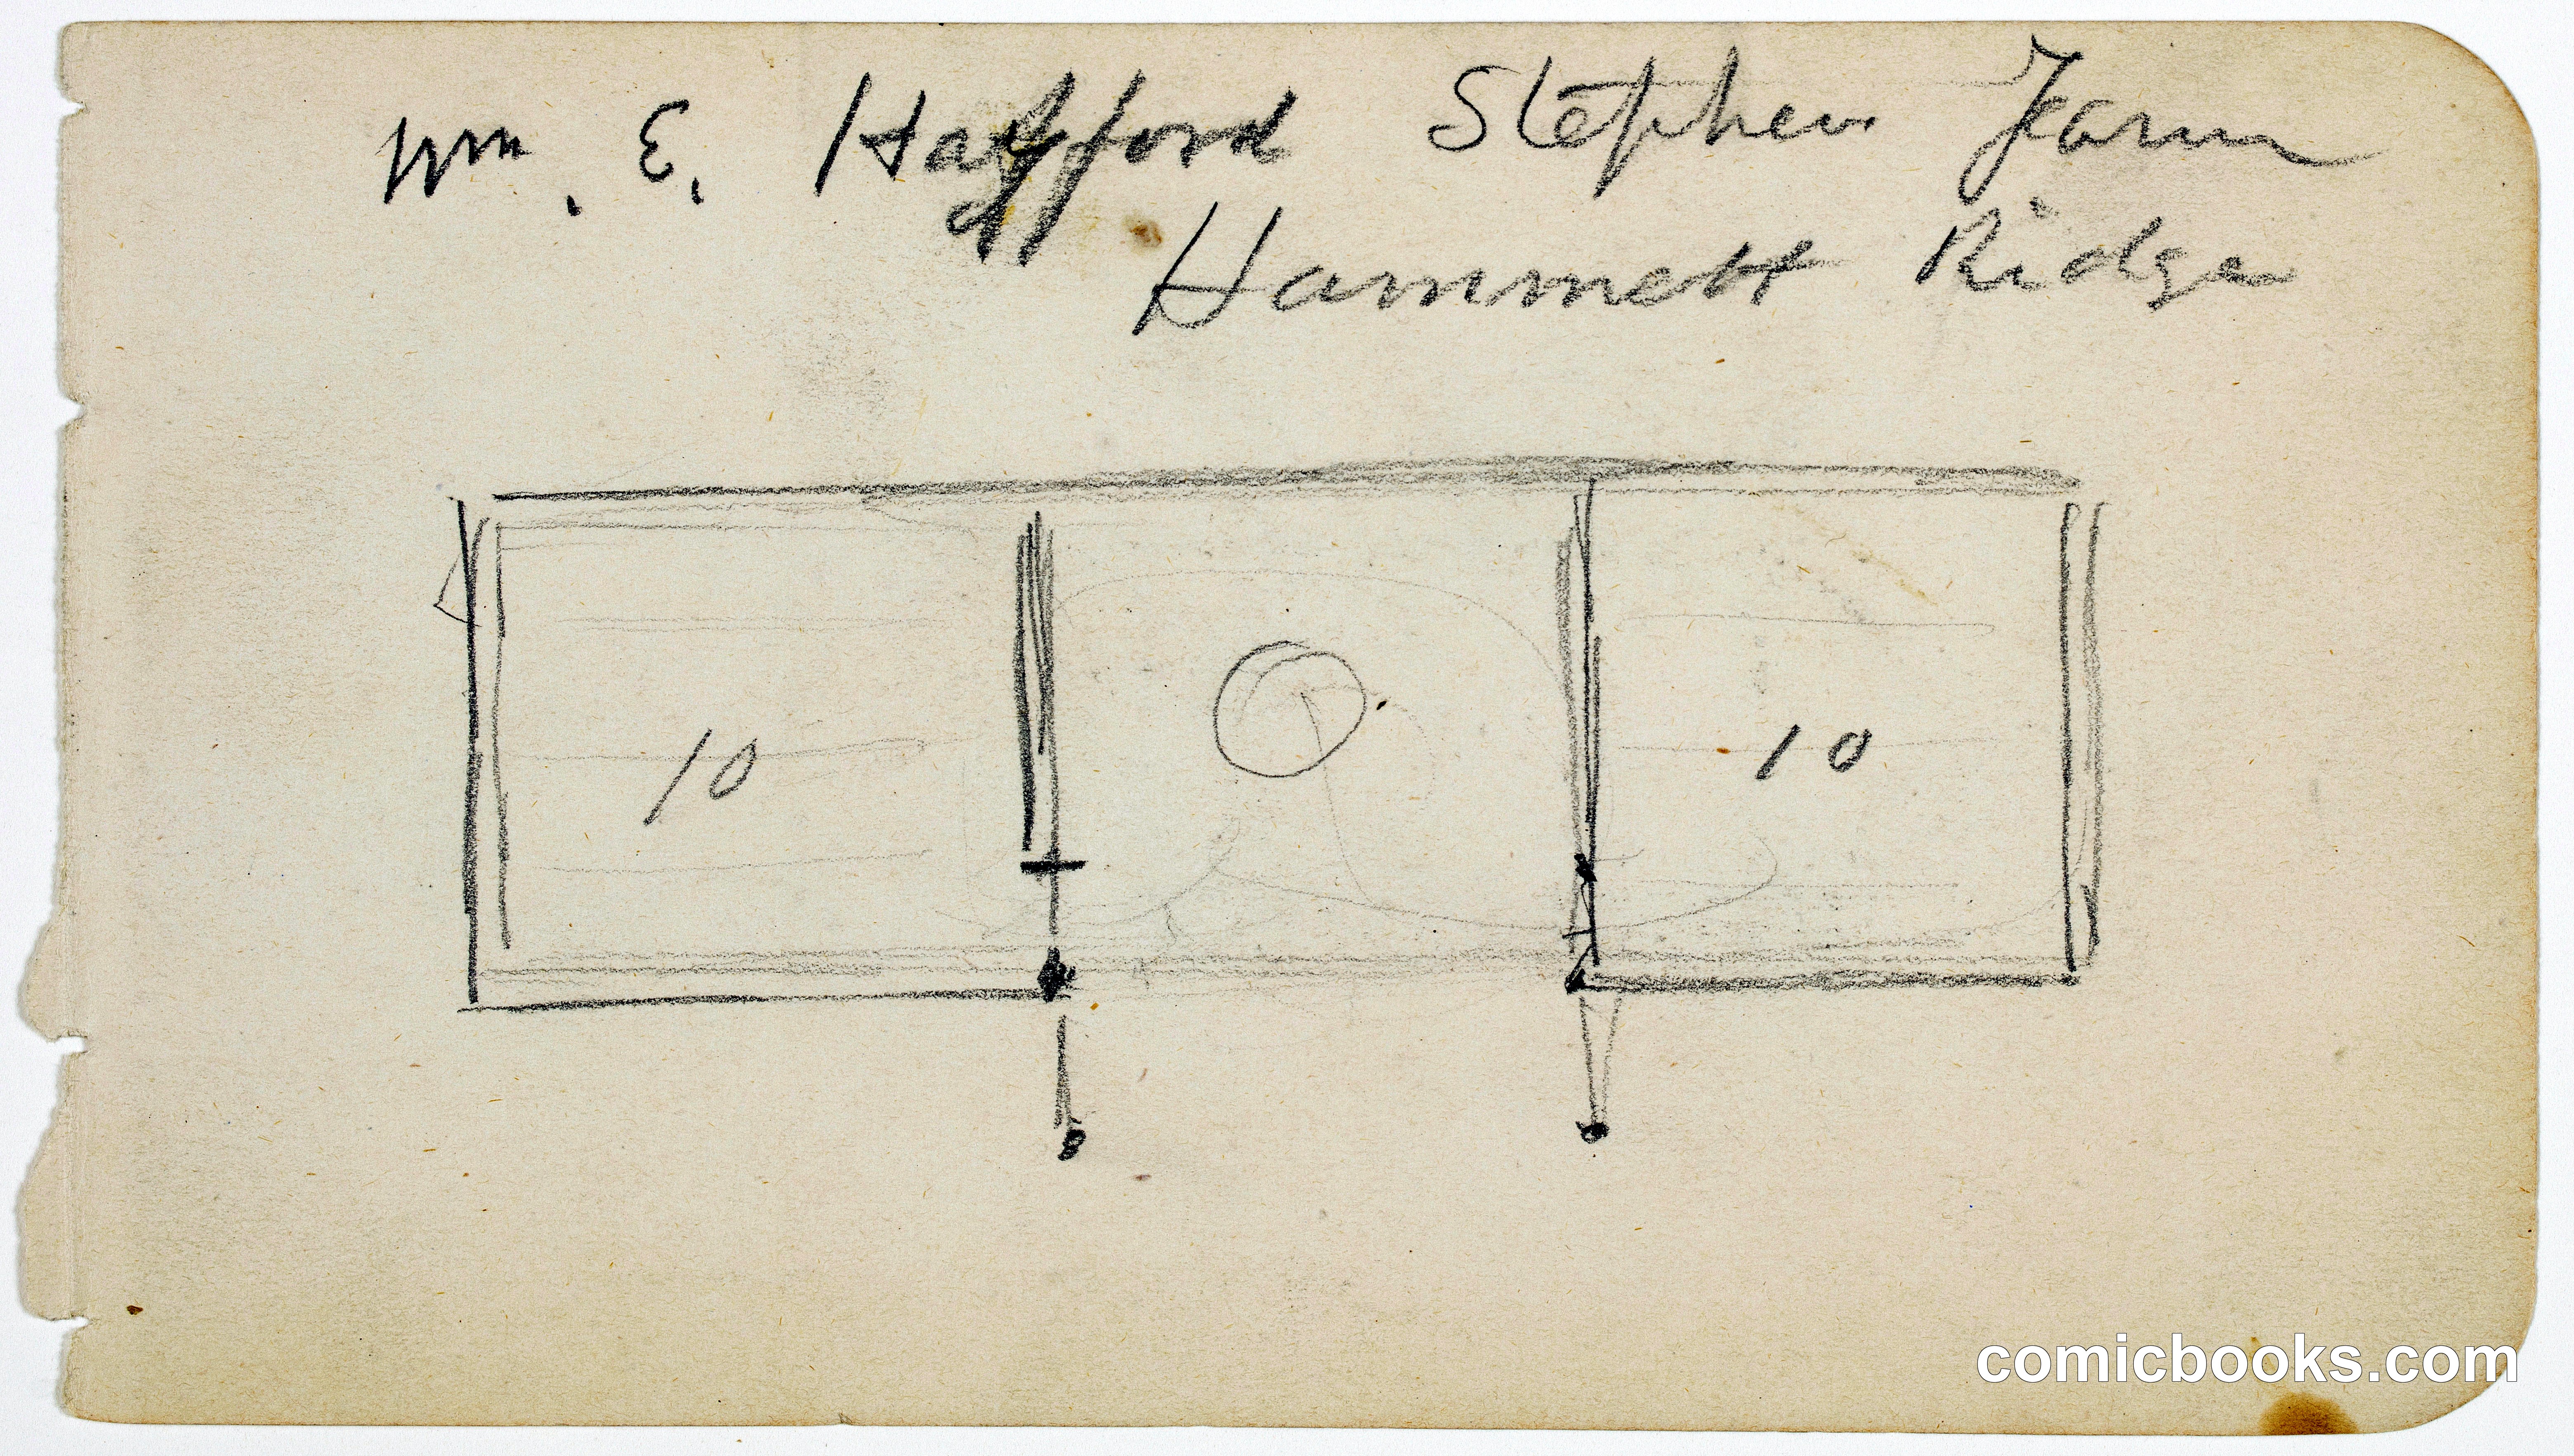 Wm. E. Hafford Stephen Farm
ff
Hammett Ridge
10
10
comicbooks.com